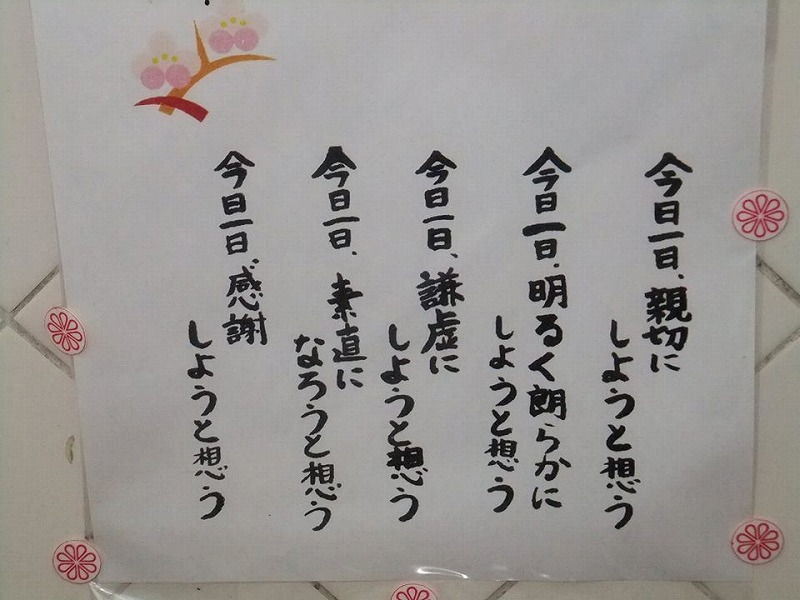 今日一日、親切に
しようと想う
今日一日、明るく朗らかに
しようと想う
今日一日、謙虚に
しようと想う
今日一日、素直に
なろうと想う
今日一日、感謝
しようと想う